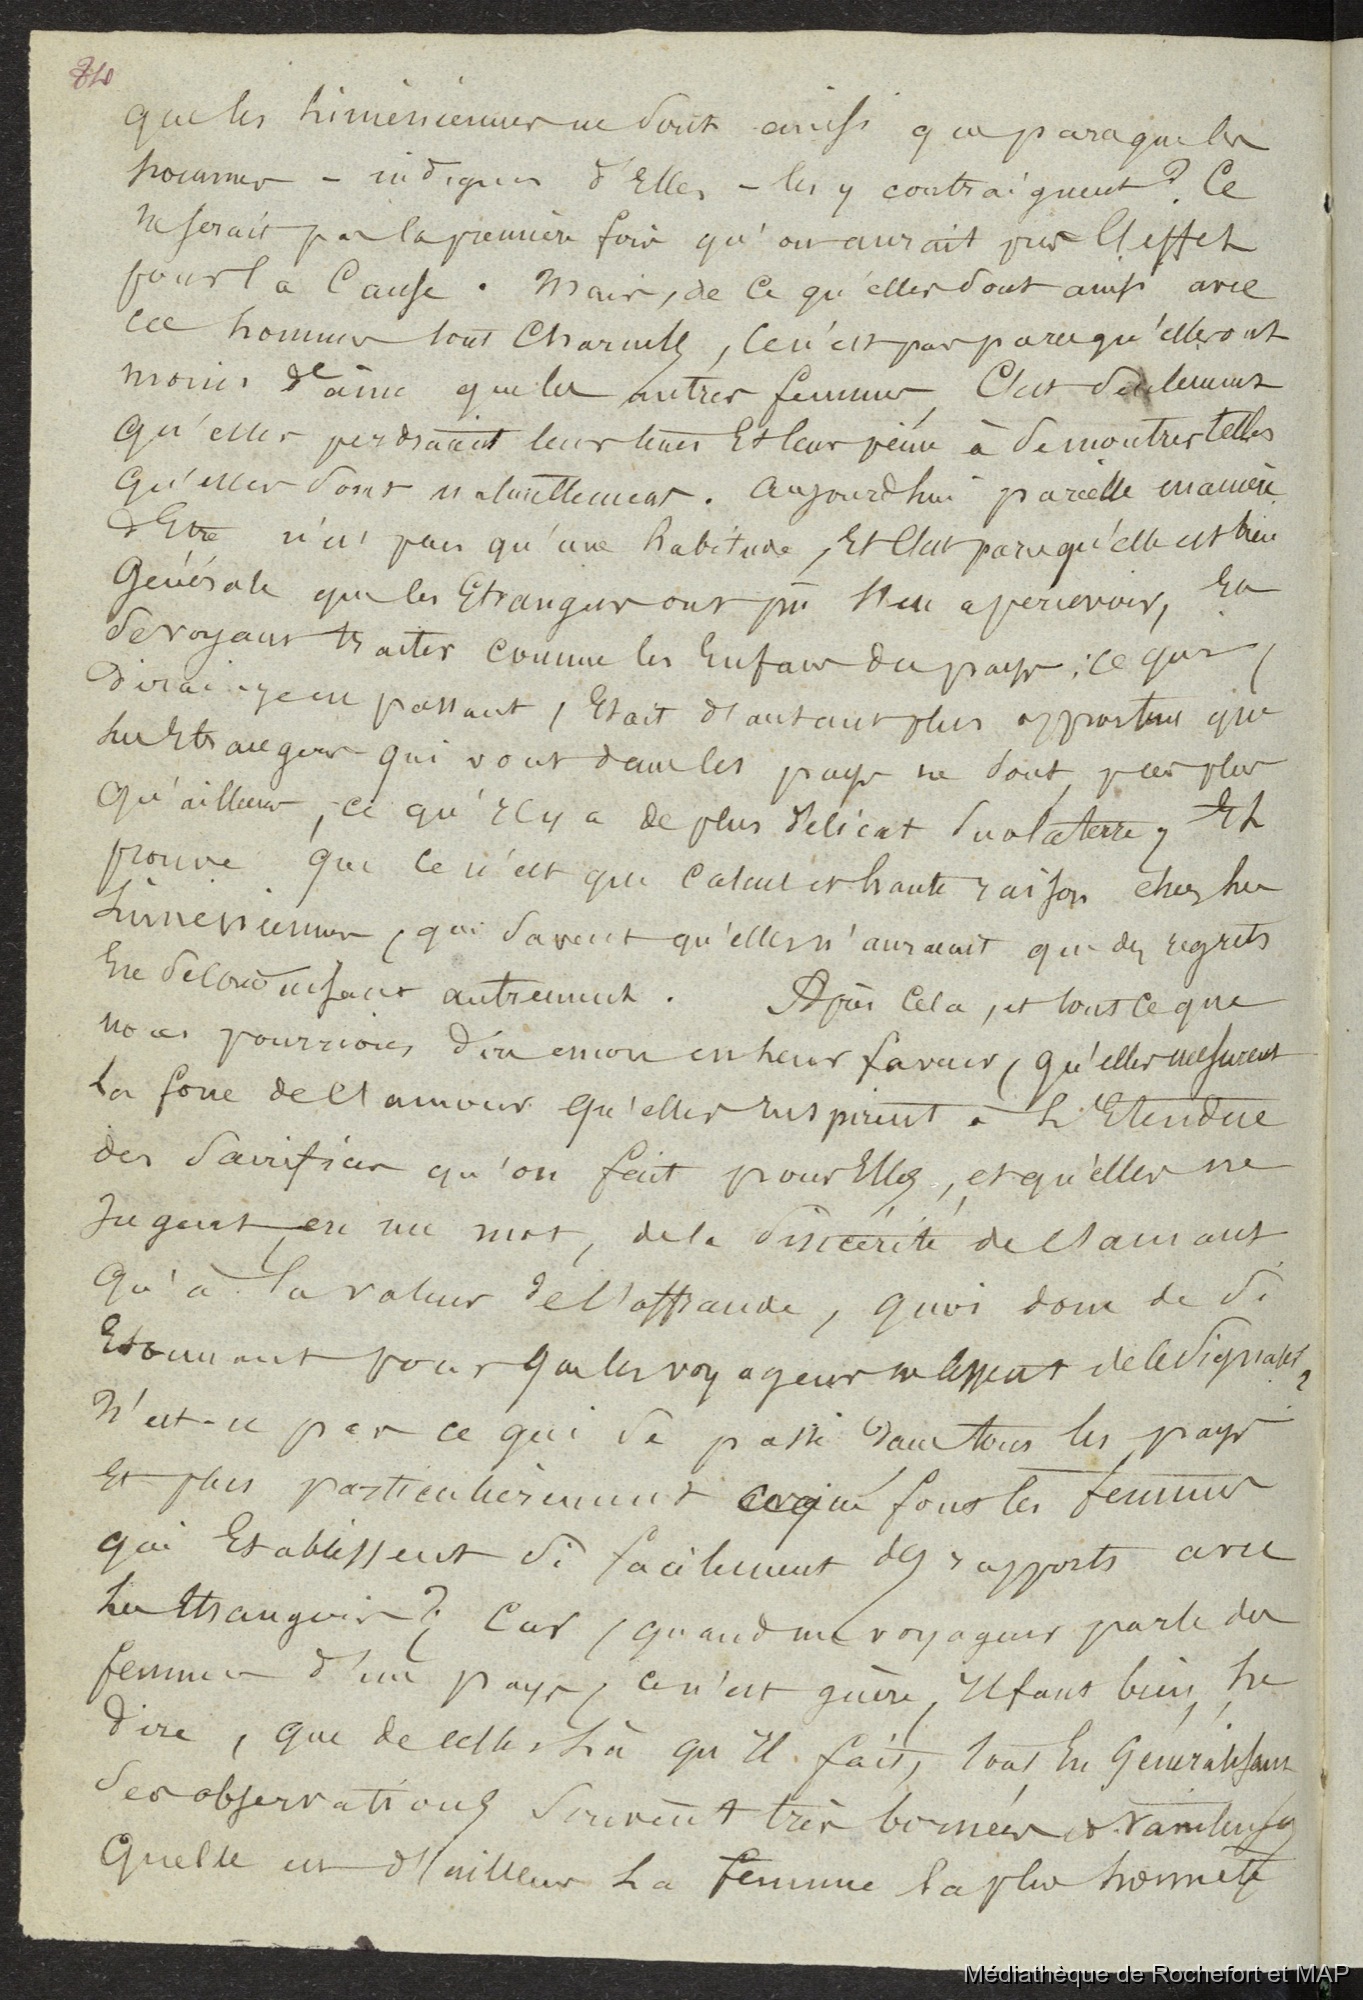 que les Liméniennes ne sont ainsi que parce que les
hommes - indignes d'Elles - les y contraignent? Ce
ne serait pas la première fois qu'on aurait pris l'effet
pour la Cause. Mais, de ce qu'elles sont ainsi avec
ces hommes tout Charnels, ce n'est pas parce qu'elles ont
moins d'âme que les autres femmes, C'est seulement
qu'elles perdraient leur tems Et leur peine à se montrer telles
qu'elles sont naturellement. Aujourd'hui pareille manière
d'Etre n'est plus qu'une habitude, Et C'est parce qu'elle est bien
Générale que les Etrangers ont pu s'en apercevoir, En
se voyant traiter comme les Enfans du pays; ce qui,
dirai-je en passant, Etait d'autant plus opportun que
les Etrangers qui vont dans les pays ne sont, pas plus
qu'ailleurs, ce qu'il y a de plus délicat sur la terre, Et
prouve que ce n'est que calcul et haute raison chez les
Liméniennes, qui savent qu'elles n'auraient que des regrets
En se conduisant autrement. Après Cela, et tout ce que
nous pourrions dire encore en leur faveur, qu'elles mesurent
la force de l'amour qu'elles inspirent à L'Etendue
des sacrifices qu'on fait pour Elles, et qu'elles ne
Jugent, en un mot, de la sincérité de l'amant
Qu'à la valeur de l'offrande, quoi donc de si
Etonnant pour que les voyageurs ne cessent de le signaler?
N'est-ce pas ce qui se passe dans tous les pays
Et plus particulièrement ce que font les femmes
qui Etablissent si facilement des rapports avec
les Etrangers? Car, quand un voyageur parle des
femmes d'un pays, ce n'est guère, Il faut bien le
dire, que de celles-là qu'Il fait, tout En Généralisant
ses observations souvent très bornées et
Quelle est d'ailleurs La femme la plus honnête